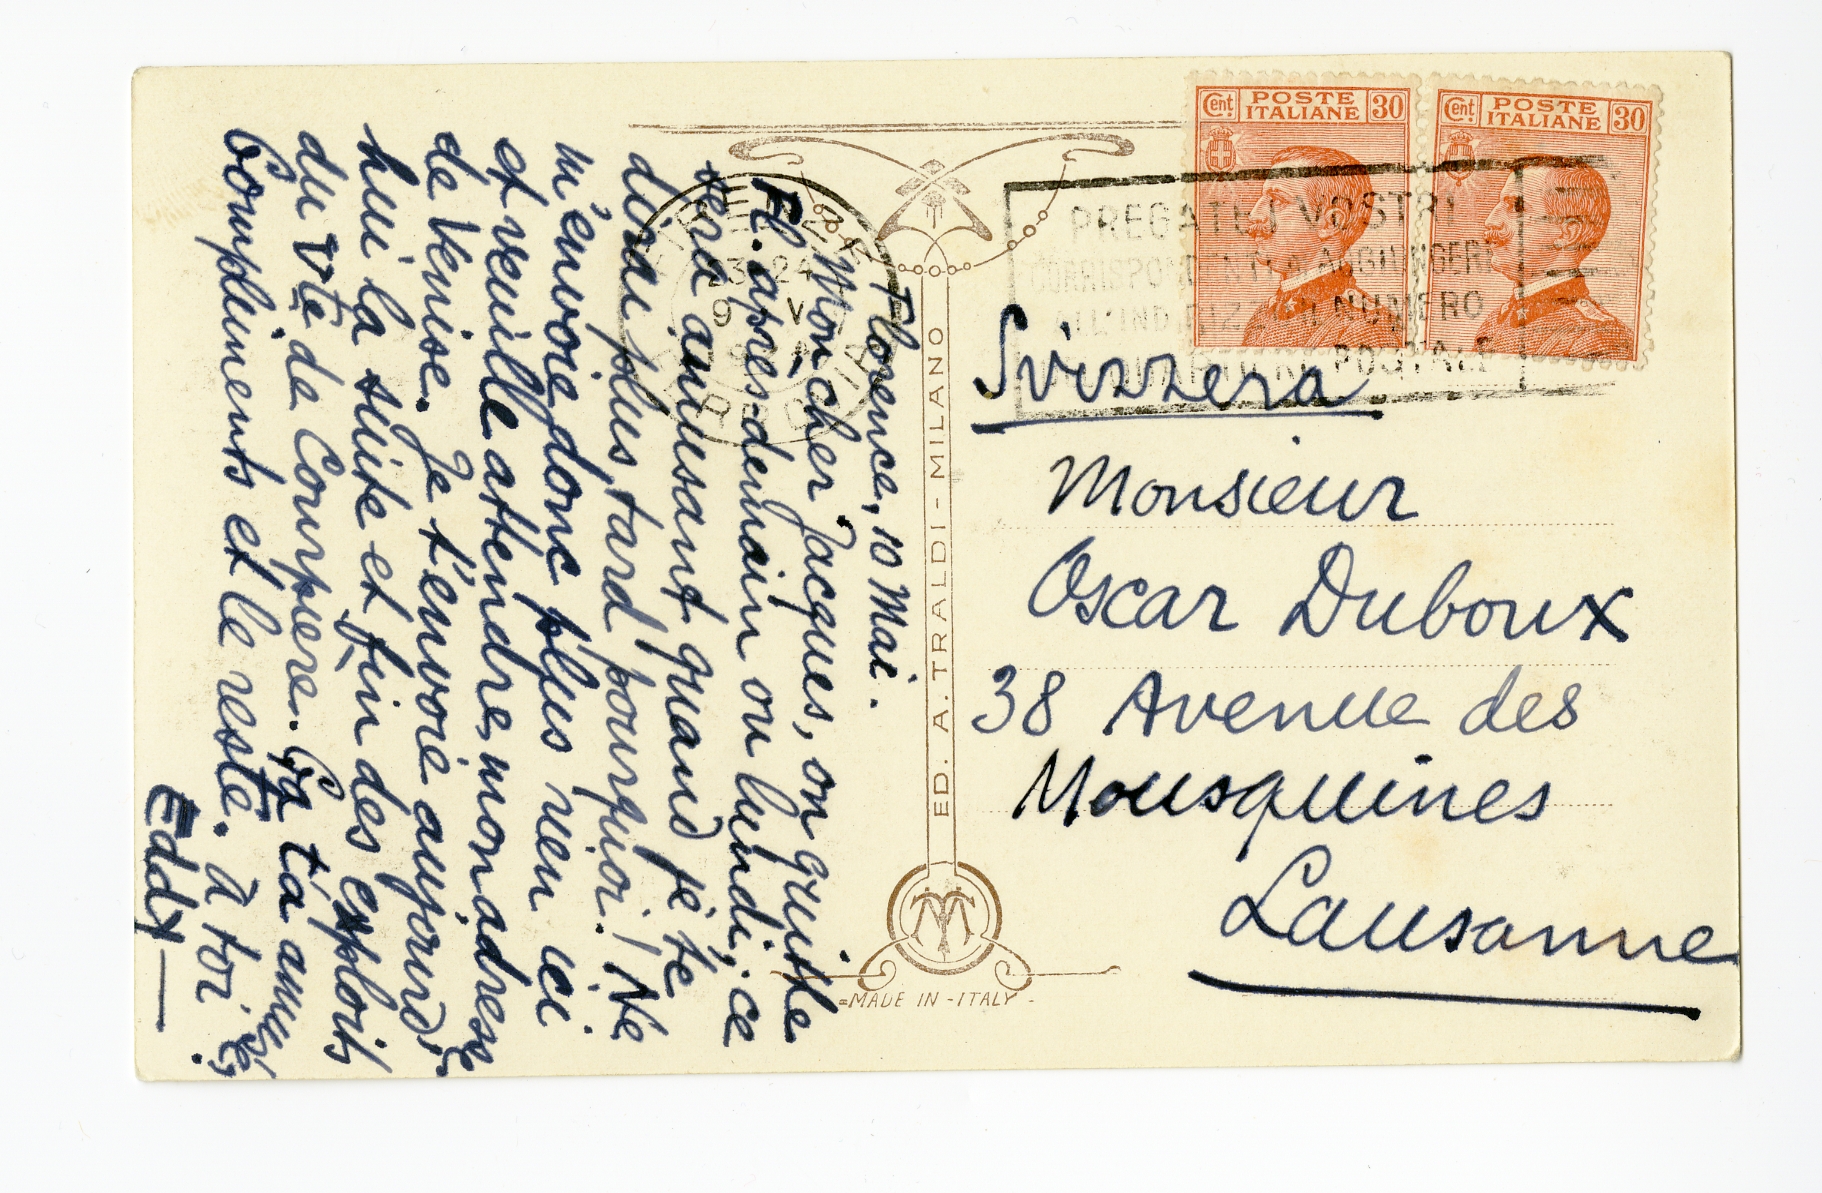 Cent POSTE ITALIANE 30
Cent POSTE ITALIANE 30
PREGATE I VOSTRI
CORRISPONDENTI A AGGIUNGERE
ALL'INDIRIZZO IL NUMERO
QUARTIERE POSTALE
FIRENZE
23-24
9 V
Florence, 10 Mai.
Mon cher Jacques, on quitte
Fl. après-demain ou lundi; ce
sera amusant quand je te
dirai plus tard pourquoi! Ne
m'envoie donc plus rien ici
et veuille attendre mon adresse
de Venise. Je t'envoie aujourd'
hui la suite et fin des exploits
du Vte de Courpière. Ça t'a amusé?
Compliments et le reste. à toi
Eddy
ED. A. TRALDI - MILANO
MADE IN - ITALY -
Svizzera
Monsieur
Oscar Duboux
38 Avenue des
Mousquines
Lausanne